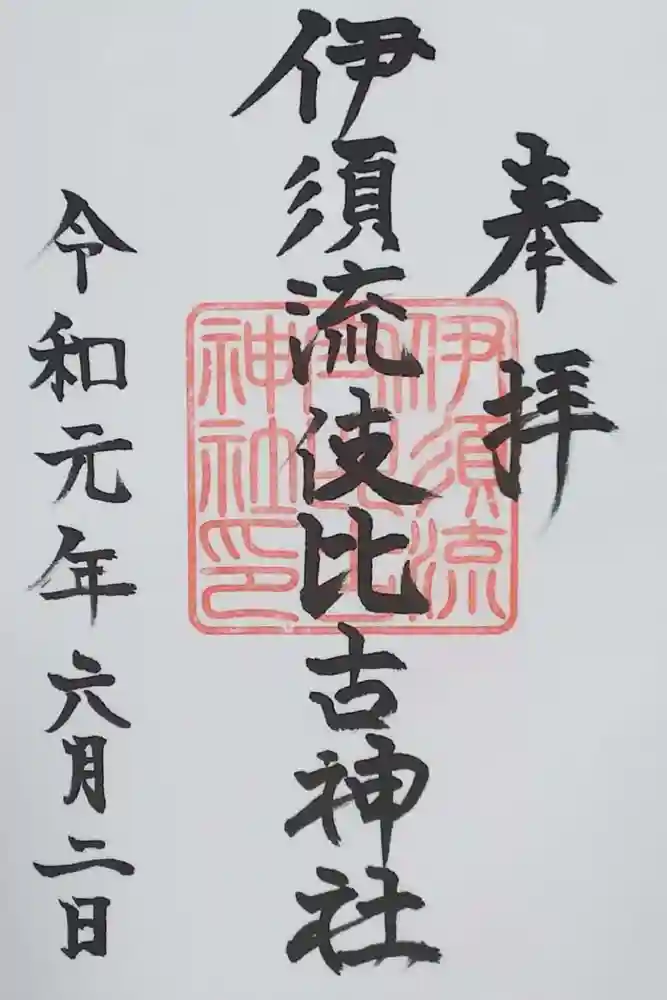 奉拝
伊須流伎比古神社
令和元年六月二日
伊須流
神社印